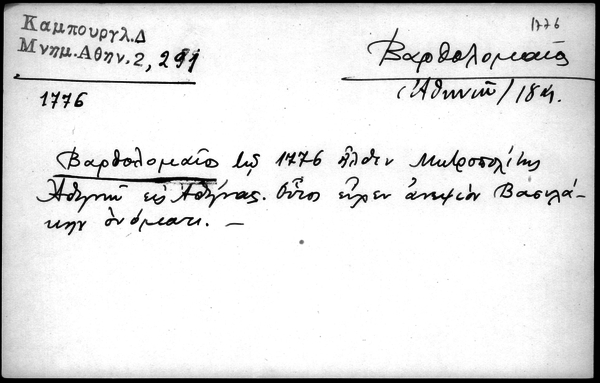 Καμπουργλ.Δ
Μνημ.Αθην. 2, 291
1776
1776
Βαρθολομαῖος
Ἀθηνῶν / 18 αι.
Βαρθολομαῖος τῷ 1776 ἦλθεν Μητροπολίτης
Ἀθηνῶν εἰς Ἀθήνας. Οὗτος εἶχεν ἀνεψιὸν Βασιλά-
κην ὀνόματι. —